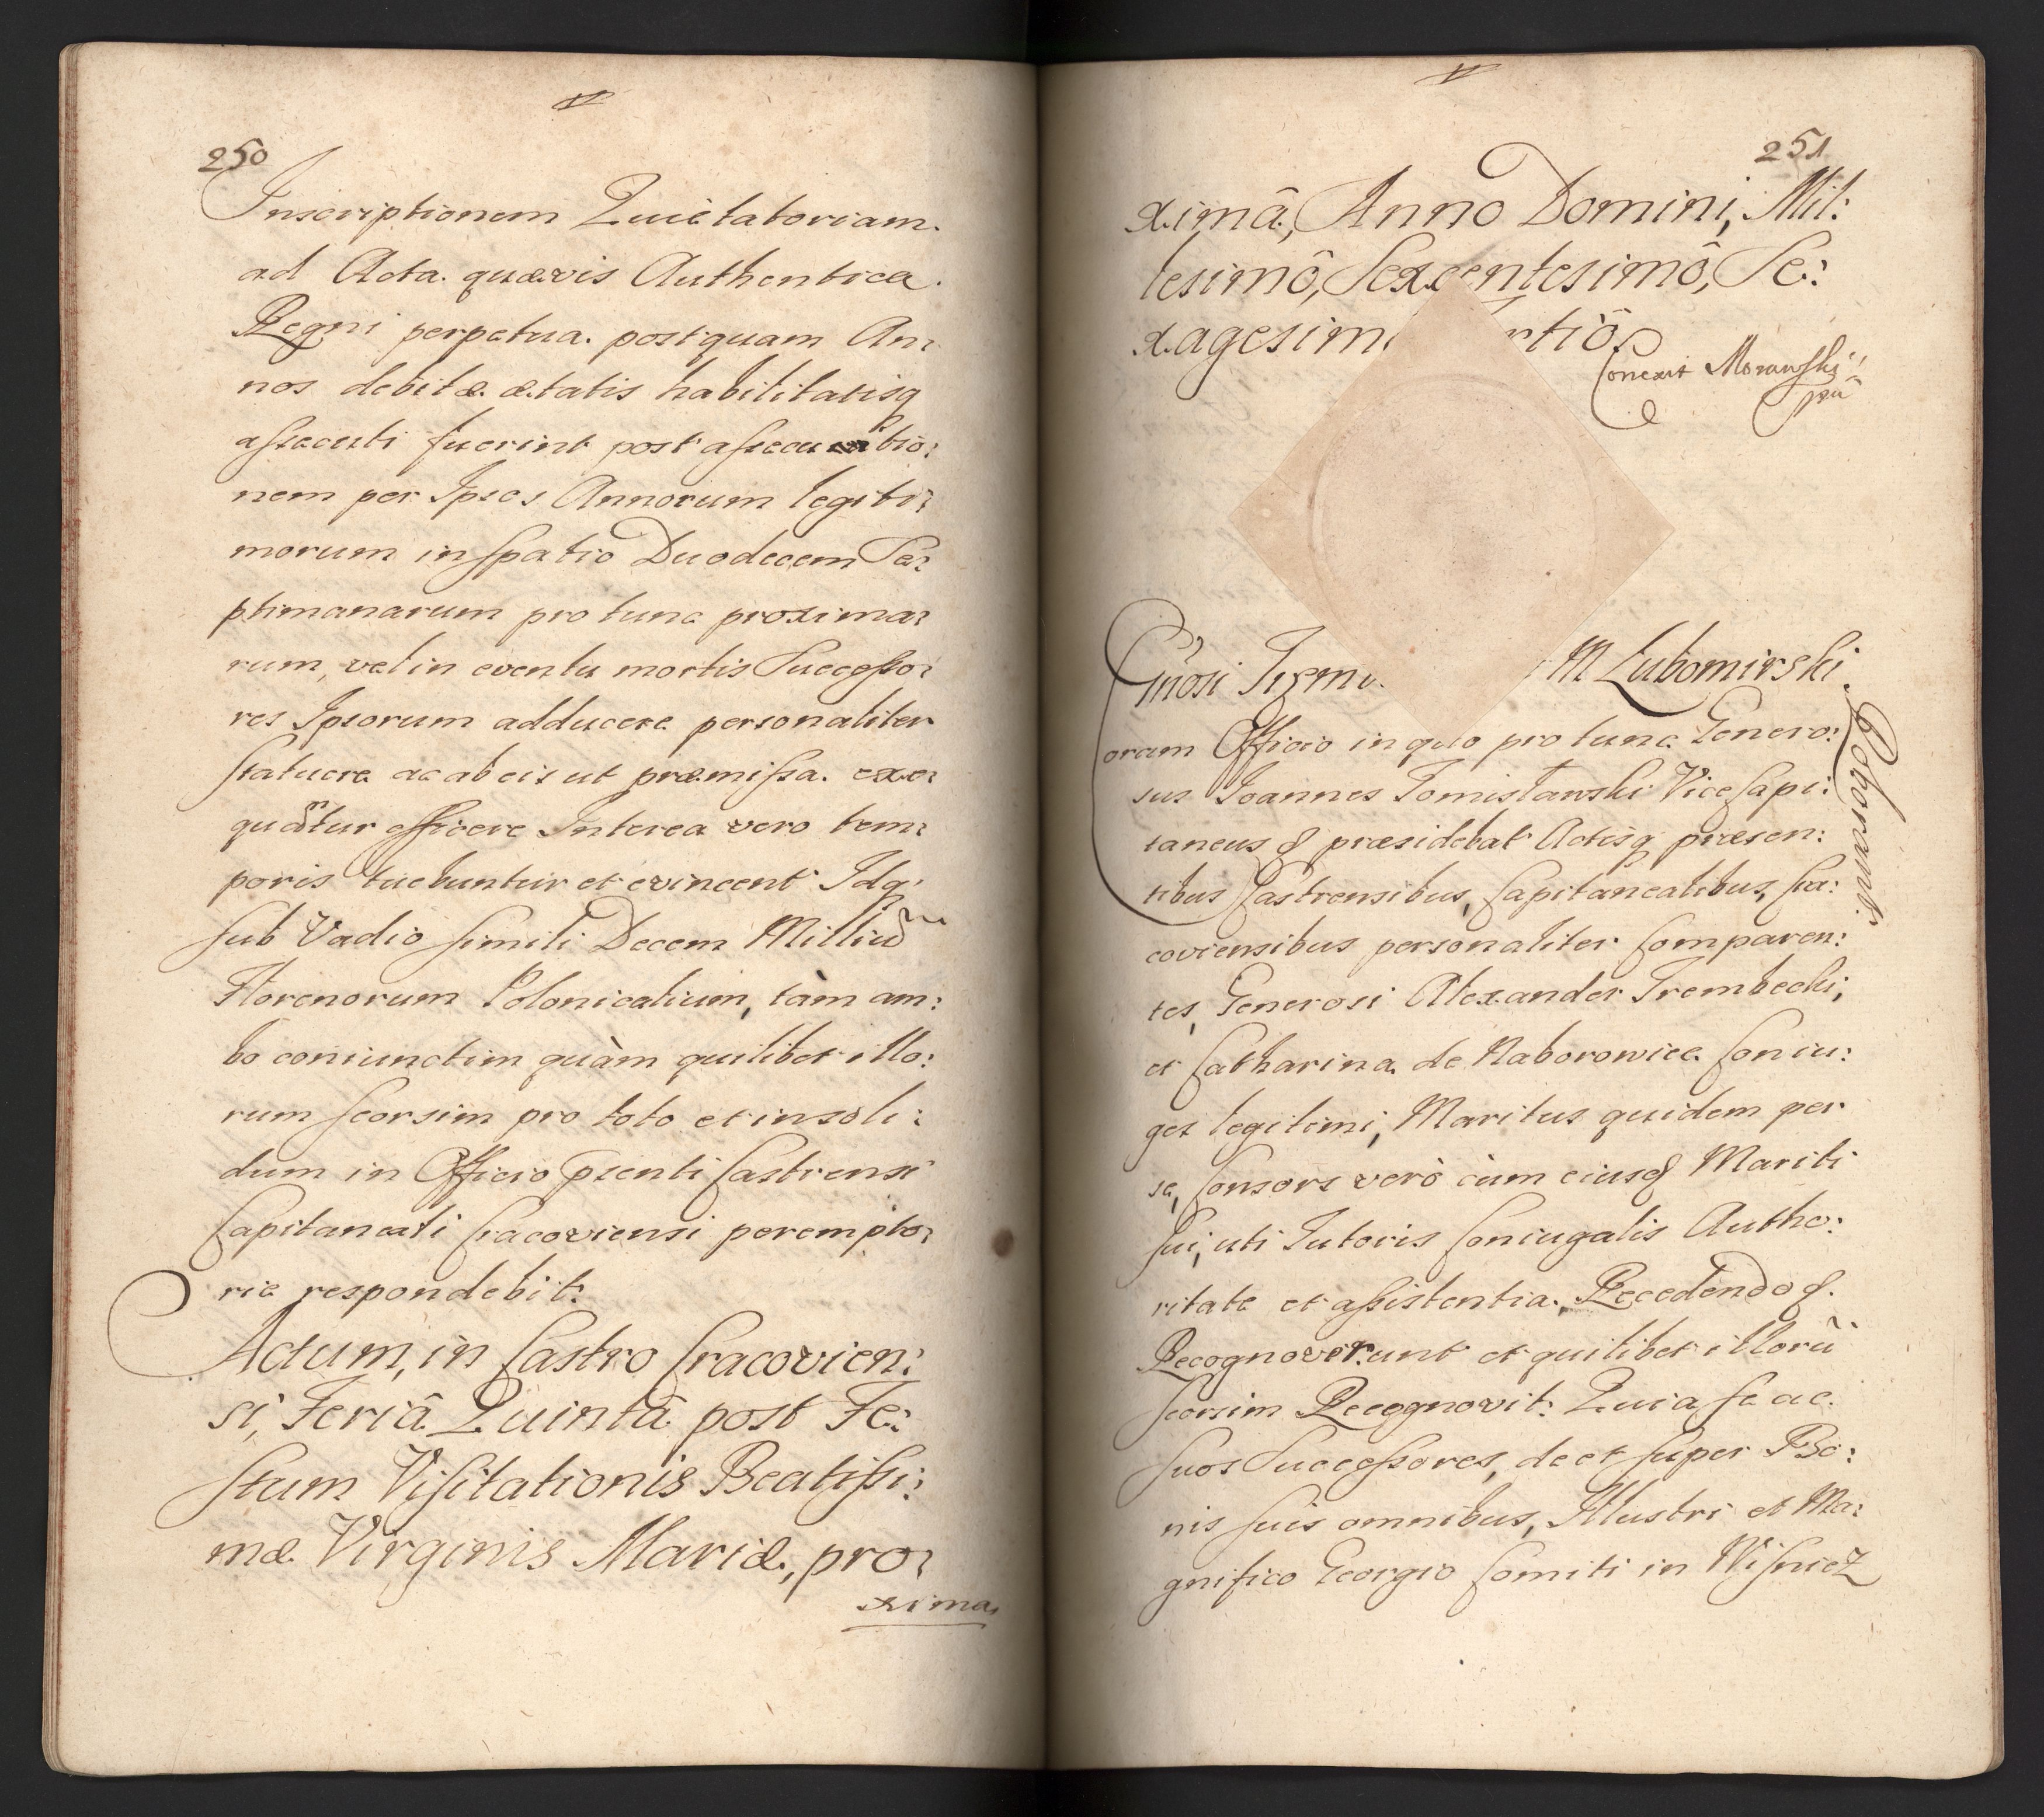 250
Inscriptionem Quietatoriam.
ad Acta quævis Authentica.
Regni perpetua. postquam An:
nos debitæ ætatis habilitatisq
assecuti fuerint post assecutio:
nem per Ipsos Annorum legiti:
morum in spatio Duodecem Se:
ptimanarum pro tunc proxima:
rum, vel in eventu mortis Successo:
res Ipsorum adducere personaliter
statuere ac ab eis ut præmissa. exe:
quātur efficere Interea vero tem:
poris tuebuntur et evincent Idq,
sub Vadio simili Decem Milliū
Florenorum Polonicalium, tàm am:
bo coniunctim quàm quilibet illo:
rum seorsim pro toto et in soli:
dum in Officio pñti Castrensi
Capitaneali Cracoviensi perempto:
rie respondebit:
Actum, in Castro Cracovien:
si, Feriâ Quintâ post Fe:
stum Visitationis Beatissi:
mæ Virginis Mariæ, pro:
xima,
251
ximâ, Anno Domini, Mil:
lesimô, Sexcentesimô, Se:
xagesim rtiô.
Conexit Morawski
Gnosi Trem M Lubomirski
oram Officio in quo pro tunc Genero:
sus Ioannes Tomisławski Vice Capi:
taneus & præsidebat Actisq præsen:
tibus Castrensibus, Capitanealibus, Cra:
coviensibus personaliter Comparen:
tes, Generosi Alexander Trembecki,
et Catharina de Naborowice Coniu:
ges legitimi, Maritus quidem per
se, Consors verò cùm eiusd Mariti
sui, uti Tutoris Coniugalis Autho:
ritate et assistentia, Recedendo &.
Recognoverunt et quilibet illorū
seorsim Recognovit: Quia se ac
suos Successores, de et super Bo:
nis suis omnibus, Illustri et Ma:
gnifico Georgio Comiti in Wisnicz